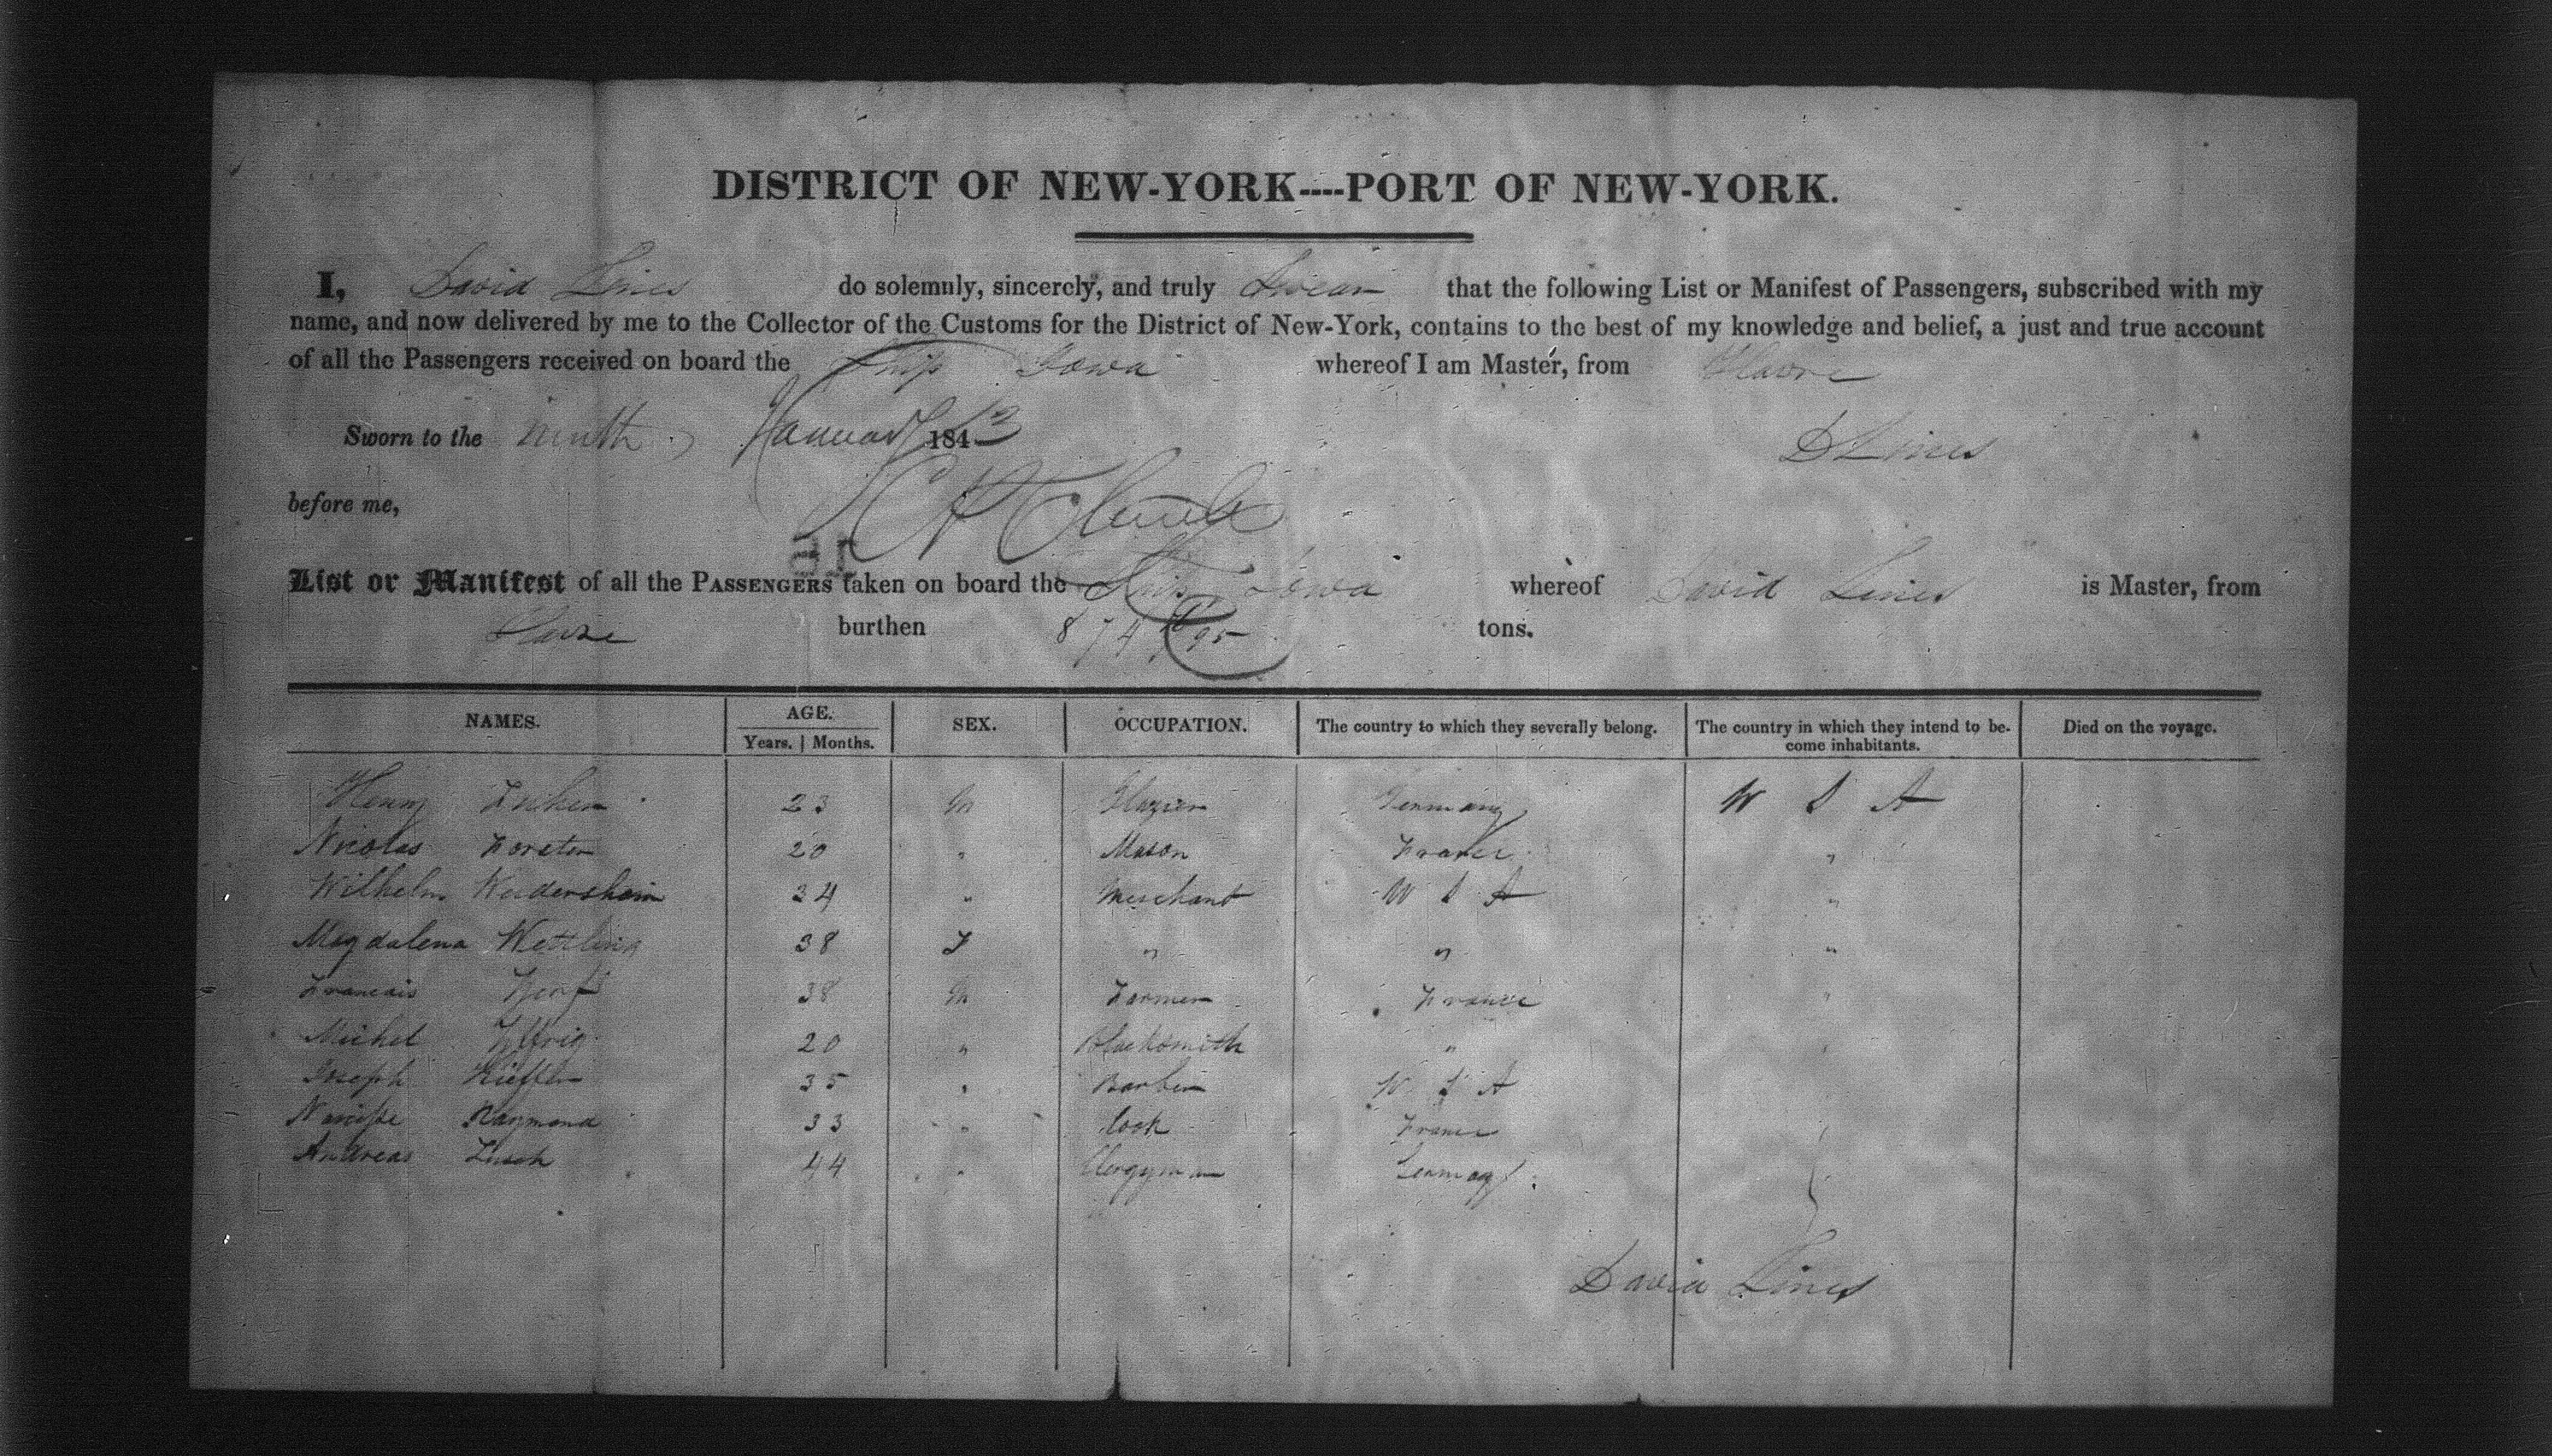 DISTRICT OF NEW-YORK----PORT OF NEW-YORK.
I, David Lines do solemnly, sincerely, and truly Swear that the following List or Manifest of Passengers, subscribed with my
name, and now delivered by me to the Collector of the Customs for the District of New-York, contains to the best of my knowledge and belief, a just and true account
of all the Passengers received on board the Ship Iowa whereof I am Master, from Havre
Sworn to the ninth January 184 D Lines
before me,
List or Manifest of all the PASSENGERS taken on board the Ship Iowa whereof David Lines is Master, from
Havre burthen 874 /95 tons.
NAMES. AGE. SEX. OCCUPATION. The country to which they severally belong. The country in which they intend to be- Died on the voyage.
Years. | Months. come inhabitants.
Henry 23 M Glazier Germany U S A
Nicolas 20 " Mason France "
Wilhelm Weidersheim 34 " Merchant U S A "
Magdalena Wettling 38 F " " "
Francais 38 M Farmer France "
Michel 20 " Blacksmith "
Joseph Kieffer 35 " Barber U S A
Narcisse Raymond 33 " Cook France
Andreas 44 " Clergyman Germany
David Lines